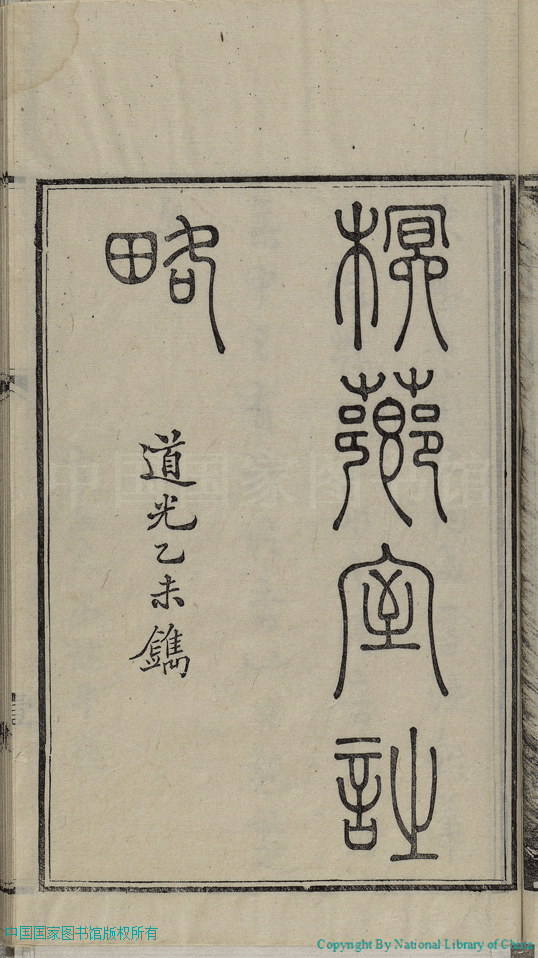 薌室詩
略
道光乙未鐫
中国国家图书馆
中国国家图书馆版权所有
Copyright By National Library of China